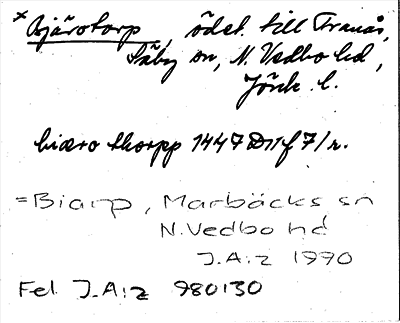 * Bjärotorp, ödet. till Tranås,
Säby sn, N. Vedbo hd,
Jönk. l.
biæro thorpp 1447 Dnf 7/r.
= Biarp, Marbäcks sn
N. Vedbo hd
J.A:z 1990
Fel J.A:z 980130